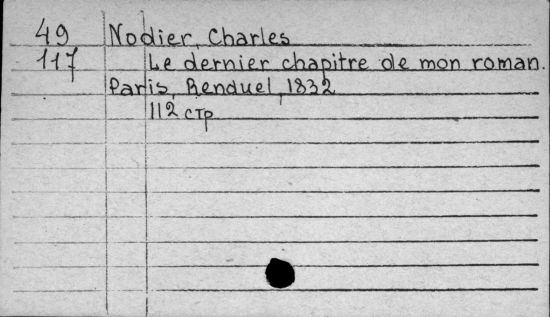 49 Nodier, Charles
117 Le dernier chapitre de mon roman.
Paris, Renduel, 1832
112 стр